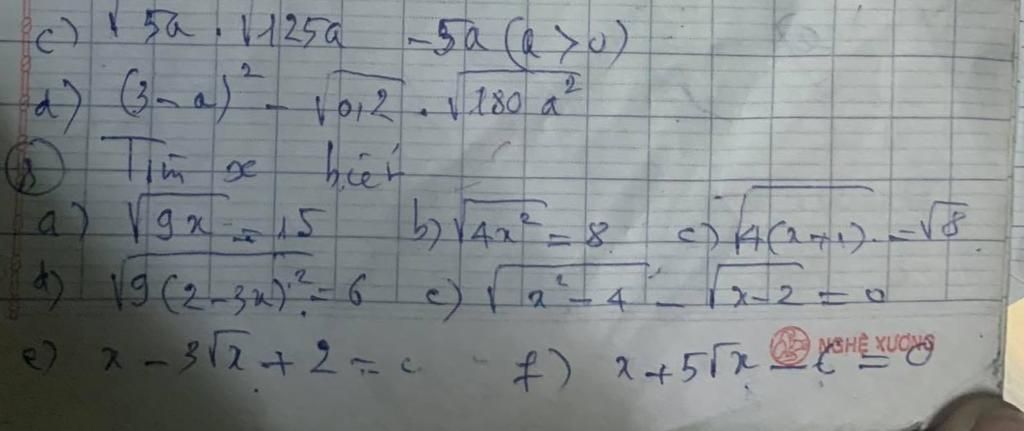 c) √5a . √125a - 5a (a > 0)
d) (3 - a)² - √0,2 . √180 a²
③ Tìm x biết
a) √9x = 15 b) √4x² = 8 c) √4(x+1) = √8
d) √9(2-3x)² = 6 e) √x²-4 - √x-2 = 0
e) x - 3√x + 2 = 0 f) x + 5√x - = 0
NGHỆ XƯƠNG